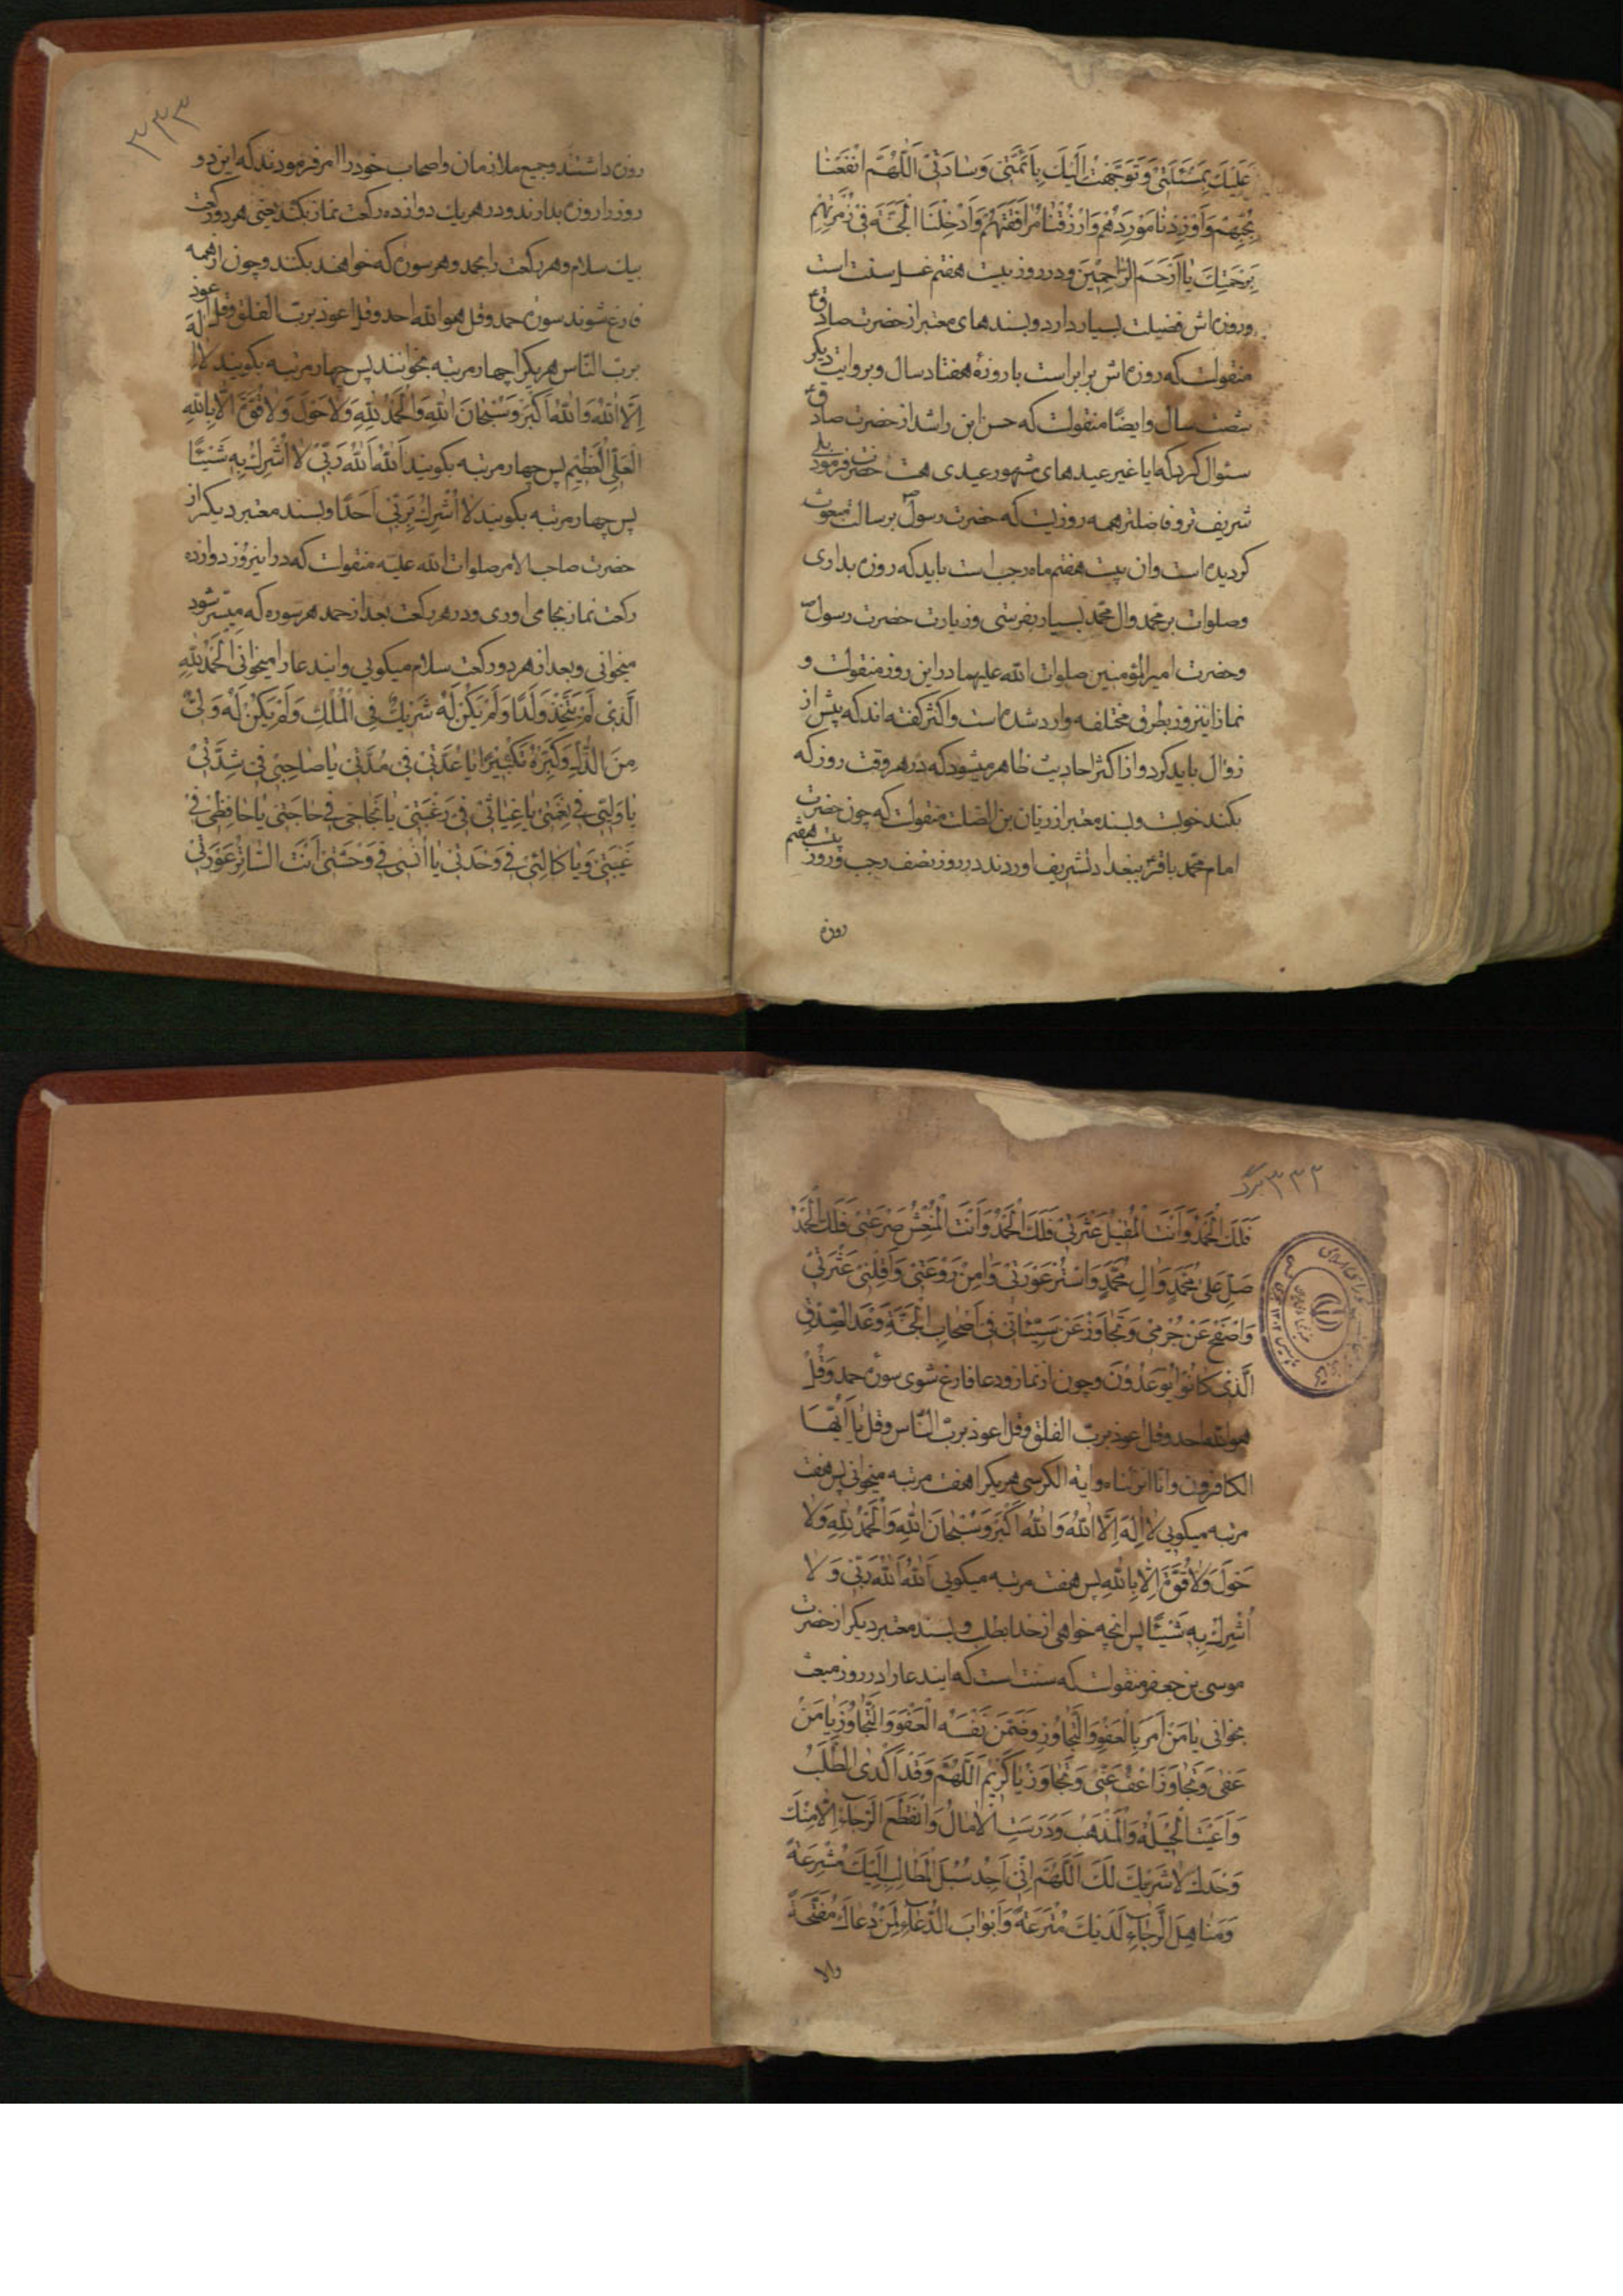 عَلَيْكَ بِمَسْئَلَتِي وَتَوَجَّهْتُ اِلَيْكَ بِاَئِمَّتِي وَسَادَتِي اَللّٰهُمَّ انْفَعْنَا
بِحُبِّهِمْ وَاَوْرِدْنَا مَوْرِدَهُمْ وَارْزُقْنَا مُرَافَقَتَهُمْ وَاَدْخِلْنَا الْجَنَّةَ فِي زُمْرَتِهِمْ
بِرَحْمَتِكَ يَا اَرْحَمَ الرَّاحِمِينَ ودر روز بیست هفتم غسل سنت است
وروزه اش فضیلت بسیار دارد وبسندهای معتبر از حضرت صادق ع
منقولست که روزه اش برابر است با روزهٔ هفتاد سال وبروایت دیکر
شصت سال وایضًا منقولست که حسن ابن راشد از حضرت صادق ع
سئوال کرد که ایا غیر عیدهای مشهور عیدی هست حضرت فرمود بلی
شریف تر وفاضلتر همه روزیست که حضرت رسول ص برسالت مبعوث
کردیده است وان بیست هفتم ماه رجب است باید که روزه بداری
وصلوات بر محمد وال محمد بسیار بفرستی وزیارت حضرت رسول ص
وحضرت امیر المؤمنین صلوات الله علیهما در این روز منقولست و
نماز اینروز بطرق مختلفه وارد شده است واکثر کفته اند که پیش از
زوال باید کرد واز اکثر احادیث ظاهر میشود که در هر وقت روز که
بکند خوبست وبسند معتبر از ریان بن الصلت منقولست که چون حضرت
امام محمد باقر ع ببغداد تشریف اوردند در روز نصف رجب وروز بیست هفتم
روزه
۳۳۳
روزه داشتند وجمیع ملازمان واصحاب خود را امر فرمودند که این دو
روز را روزه بدارند ودر هر یك دوازده رکعت نماز بکنند یعنی هر دو رکعت
بیك سلام وهر رکعت را بحمد وهر سوره که خواهند بکنند وچون از همه
فارغ شوند سوره حمد وقل هو الله احد وقل اعوذ برب الفلق وقل اعوذ
برب النّاس هر یکرا چهار مرتبه بخوانند پس چهار مرتبه بکویند لا اله
اِلَّا اللهُ وَاللهُ اَكْبَرُ وَسُبْحَانَ اللهِ وَالْحَمْدُ لِلّٰهِ وَلَا حَوْلَ وَلَا قُوَّةَ اِلَّا بِاللهِ
الْعَلِيِّ الْعَظِيمِ پس چهار مرتبه بکویند اَللهُ اَللهُ رَبِّي لَا اُشْرِكُ بِهِ شَيْئًا
پس چهار مرتبه بکویند لَا اُشْرِكُ بِرَبِّي اَحَدًا وبسند معتبر دیکر از
حضرت صاحب الامر صلوات الله علیه منقولست که در اینروز دوازده
رکعت نماز بجا می اوری ودر هر رکعت بعد از حمد هر سوره که میسّر شود
میخوانی وبعد از هر دو رکعت سلام میکویی وایندعا را میخوانی اَلْحَمْدُ لِلّٰهِ
الَّذِي لَمْ يَتَّخِذْ وَلَدًا وَلَمْ يَكُنْ لَهُ شَرِيكٌ فِي الْمُلْكِ وَلَمْ يَكُنْ لَهُ وَلِيٌّ
مِنَ الذُّلِّ وَكَبِّرْهُ تَكْبِيرًا يَا عُدَّتِي فِي مُدَّتِي يَا صَاحِبِي فِي شِدَّتِي
يَا وَلِيِّي فِي نِعْمَتِي يَا غِيَاثِي فِي رَغْبَتِي يَا نَجَاحِي فِي حَاجَتِي يَا حَافِظِي فِي
غَيْبَتِي وَيَا كَالِئِي فِي وَحْدَتِي يَا اُنْسِي فِي وَحْشَتِي اَنْتَ السَّاتِرُ عَوْرَتِي
۳۳۳ برگ
فَلَكَ الْحَمْدُ وَاَنْتَ الْمُقِيلُ عَثْرَتِي فَلَكَ الْحَمْدُ وَاَنْتَ الْمُنْعِشُ صَرْعَتِي فَلَكَ الْحَمْدُ
صَلِّ عَلَى مُحَمَّدٍ وَالِ مُحَمَّدٍ وَاسْتُرْ عَوْرَتِي وَامِنْ رَوْعَتِي وَاَقِلْنِي عَثْرَتِي
وَاصْفَحْ عَنْ جُرْمِي وَتَجَاوَزْ عَنْ سَيِّئَاتِي فِي اَصْحَابِ الْجَنَّةِ وَعْدَ الصِّدْقِ
الَّذِي كَانُوا يُوعَدُونَ وچون از نماز ودعا فارغ شوی سوره حمد وَقُلْ
هو الله احد وقل اعوذ برب الفلق وقل اعوذ برب النّاس وقل یَا اَیُّهَا
الکافرون وانّا انزلناه وایة الکرسی هر یکرا هفت مرتبه میخوانی پس هفت
مرتبه میکویی لَا اِلٰهَ اِلَّا اللهُ وَاللهُ اَكْبَرُ وَسُبْحَانَ اللهِ وَالْحَمْدُ لِلّٰهِ وَلَا
حَوْلَ وَلَا قُوَّةَ اِلَّا بِاللهِ پس هفت مرتبه میکویی اَللهُ اَللهُ رَبِّي وَلَا
اُشْرِكُ بِهِ شَيْئًا پس انچه خواهی از خدا بطلب وبسند معتبر دیکر از حضرت
موسی بن جعفر منقولست که سنت است که ایندعا را در روز مبعث
بخوانی يَا مَنْ اَمَرَ بِالْعَفْوِ وَالتَّجَاوُزِ وَضَمَّنَ نَفْسَهُ الْعَفْوَ وَالتَّجَاوُزَ يَا مَنْ
عَفَى وَتَجَاوَزَ اعْفُ عَنِّي وَتَجَاوَزْ يَا كَرِيمُ اَللّٰهُمَّ وَقَدْ اَكْدَى الطَّلَبُ
وَاَعْيَتِ الْحِيلَةُ وَالْمَذْهَبُ وَدَرَسَتِ الْاٰمَالُ وَانْقَطَعَ الرَّجَاءُ اِلَّا مِنْكَ
وَحْدَكَ لَا شَرِيكَ لَكَ اَللّٰهُمَّ اِنِّي اَجِدُ سُبُلَ الْمَطَالِبِ اِلَيْكَ مُشْرَعَةً
وَمَنَاهِلَ الرَّجَاءِ لَدَيْكَ مُتْرَعَةً وَاَبْوَابَ الدُّعَاءِ لِمَنْ دَعَاكَ مُفَتَّحَةً
والا